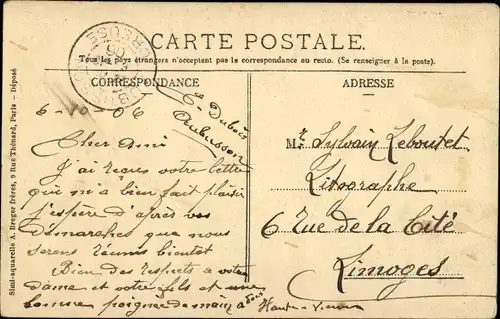 CARTE POSTALE.
Tous les pays étrangers n'acceptent pas la correspondance au recto. (Se renseigner à la poste).
CORRESPONDANCE
ADRESSE
Dubois
Aubusson
6-10-06
Cher Ami
J'ai reçues votre lettre
qui m'a bien fait plaisir
j'espère d'après vos
démarches que nous
serons réunis bientot
Bien des respects a votre
dame et votre fils et une
bonne poignée de main a
Mr Sylvain Leboutet
Litographe
6 Rue de la Cité
Limoges
Haute-Vienne
Simi-aquarelle A. Breger frères, 9 Rue Thénard, Paris — Déposé